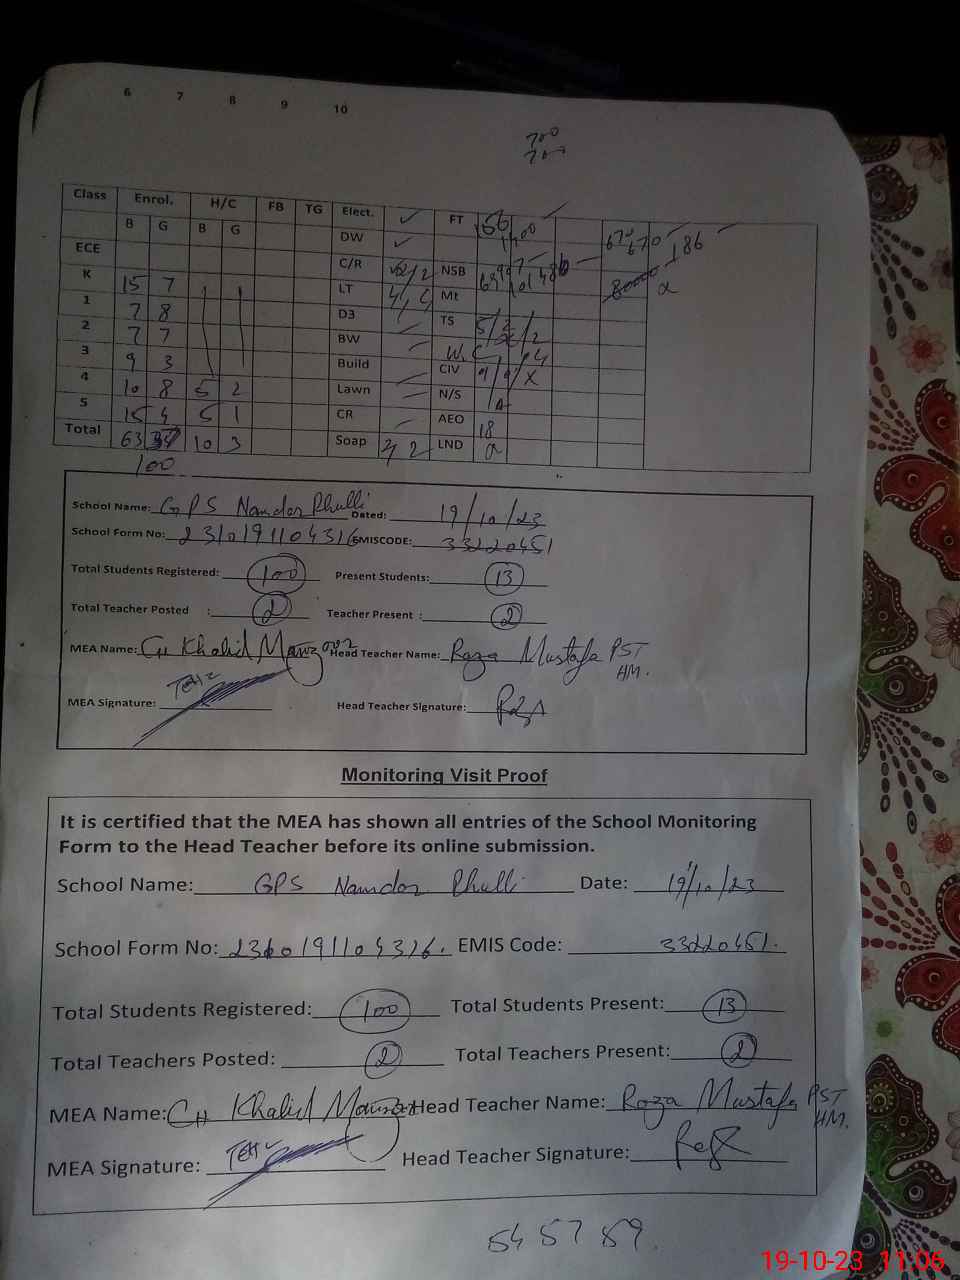 6 7 8 9 10
700
700
Class Enrol. H/C FB TG Elect. ✓ FT 56
B G B G DW ✓ 1400 670 670 186
ECE C/R 2/2 NSB
K 15 7 LT 4/4 Mt 8000 a
1 7 8 D3 TS 5/
2 7 7 BW W.C
3 9 3 Build CIV 9/9/X
4 10 8 5 2 Lawn N/S A
5 15 4 5 1 CR AEO 18
Total 63 10 3 Soap 2 LND a
100
School Name: GPS Namdar Phulli Dated: 19/10/23
School Form No: 2310191104316 EMISCODE: 33220451
Total Students Registered: 100 Present Students: 13
Total Teacher Posted : 2 Teacher Present : 2
MEA Name: CH Khalid Manzoor Head Teacher Name: Raza Mustafa PST
HM.
MEA Signature: Head Teacher Signature: Raza
Monitoring Visit Proof
It is certified that the MEA has shown all entries of the School Monitoring
Form to the Head Teacher before its online submission.
School Name: GPS Namdar Phulli Date: 19/10/23
School Form No: 2310191104316. EMIS Code: 33220451.
Total Students Registered: 100 Total Students Present: 13
Total Teachers Posted: 2 Total Teachers Present: 2
MEA Name: CH Khalid Manzoor Head Teacher Name: Raza Mustafa PST
HM.
MEA Signature: Head Teacher Signature:
54 57 59.
19-10-23 11:06